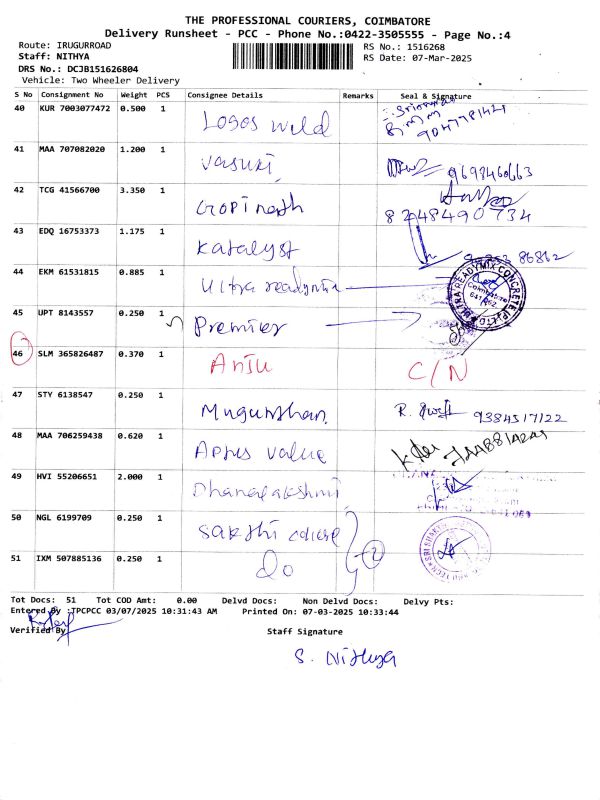 THE PROFESSIONAL COURIERS, COIMBATORE
Delivery Runsheet - PCC - Phone No.:0422-3505555 - Page No.:4
Route: IRUGURROAD
RS No.: 1516268
Staff: NITHYA
RS Date: 07-Mar-2025
DRS No.: DCJB151626804
Vehicle: Two Wheeler Delivery
S No Consignment No Weight PCS Consignee Details Remarks Seal & Signature
40 KUR 7003077472 0.500 1 Logos weld
41 MAA 707082020 1.200 1 Vasuki 9698460663
42 TCG 41566700 3.350 1 Gopinath 8248490734
43 EDQ 16753373 1.175 1 Katalyst 86862
44 EKM 61531815 0.885 1 Ultra readymix ULTRA READYMIX CONCRETE (P) LTD Coimbatore
45 UPT 8143557 0.250 1 Premier
46 SLM 365826487 0.370 1 Anju C/N
47 STY 6138547 0.250 1 R. 9384517122
48 MAA 706259438 0.620 1 Aptus value
49 HVI 55206651 2.000 1 Dhanalakshmi
50 NGL 6199709 0.250 1 Sakthi 2
51 IXM 507885136 0.250 1 Do
Tot Docs: 51 Tot COD Amt: 0.00 Delvd Docs: Non Delvd Docs: Delvy Pts:
Entered By :TPCPCC 03/07/2025 10:31:43 AM Printed On: 07-03-2025 10:33:44
Verified By
Staff Signature
S. Nithya